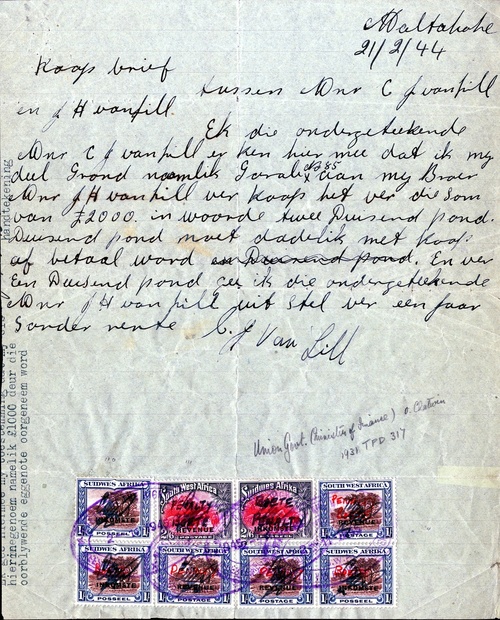 Maltahohe
21/2/44
Koop brief
tussen Mnr C J vanfill
en J H vanfill
Ek die ondergeteekende
Mnr C J vanfill er ken hier mee dat ik my
deel Grond naamlik Garalis No 85 aan my Broer
Mnr J H vanfill ver koop het ver die Som
van £2000. in woorde twee Duisend pond.
Duisend pond moet dadelik met koop
af betaal word en Duisend pond. En ver
Een Duisend pond gee ik die ondergeteekende
Mnr J H vanfill uit stel ver een jaar
Sonder rente
C. J Van Lill
Union Govt. (Minister of Finance) v.
1938 TPD 317
handtekening
hieringenoem namelik £1000 deur die
oorblywende eggenote oorgeneem word
SUIDWES AFRIKA
South West Africa
Suidwes Afrika
SUIDWES AFRIKA
PENALTY
BOETE
PENALTY
POSSEEL
2/6
REVENUE
2/6
POSSEEL
POSSEEL
POSTAGE
POSTAGE
POSSEEL